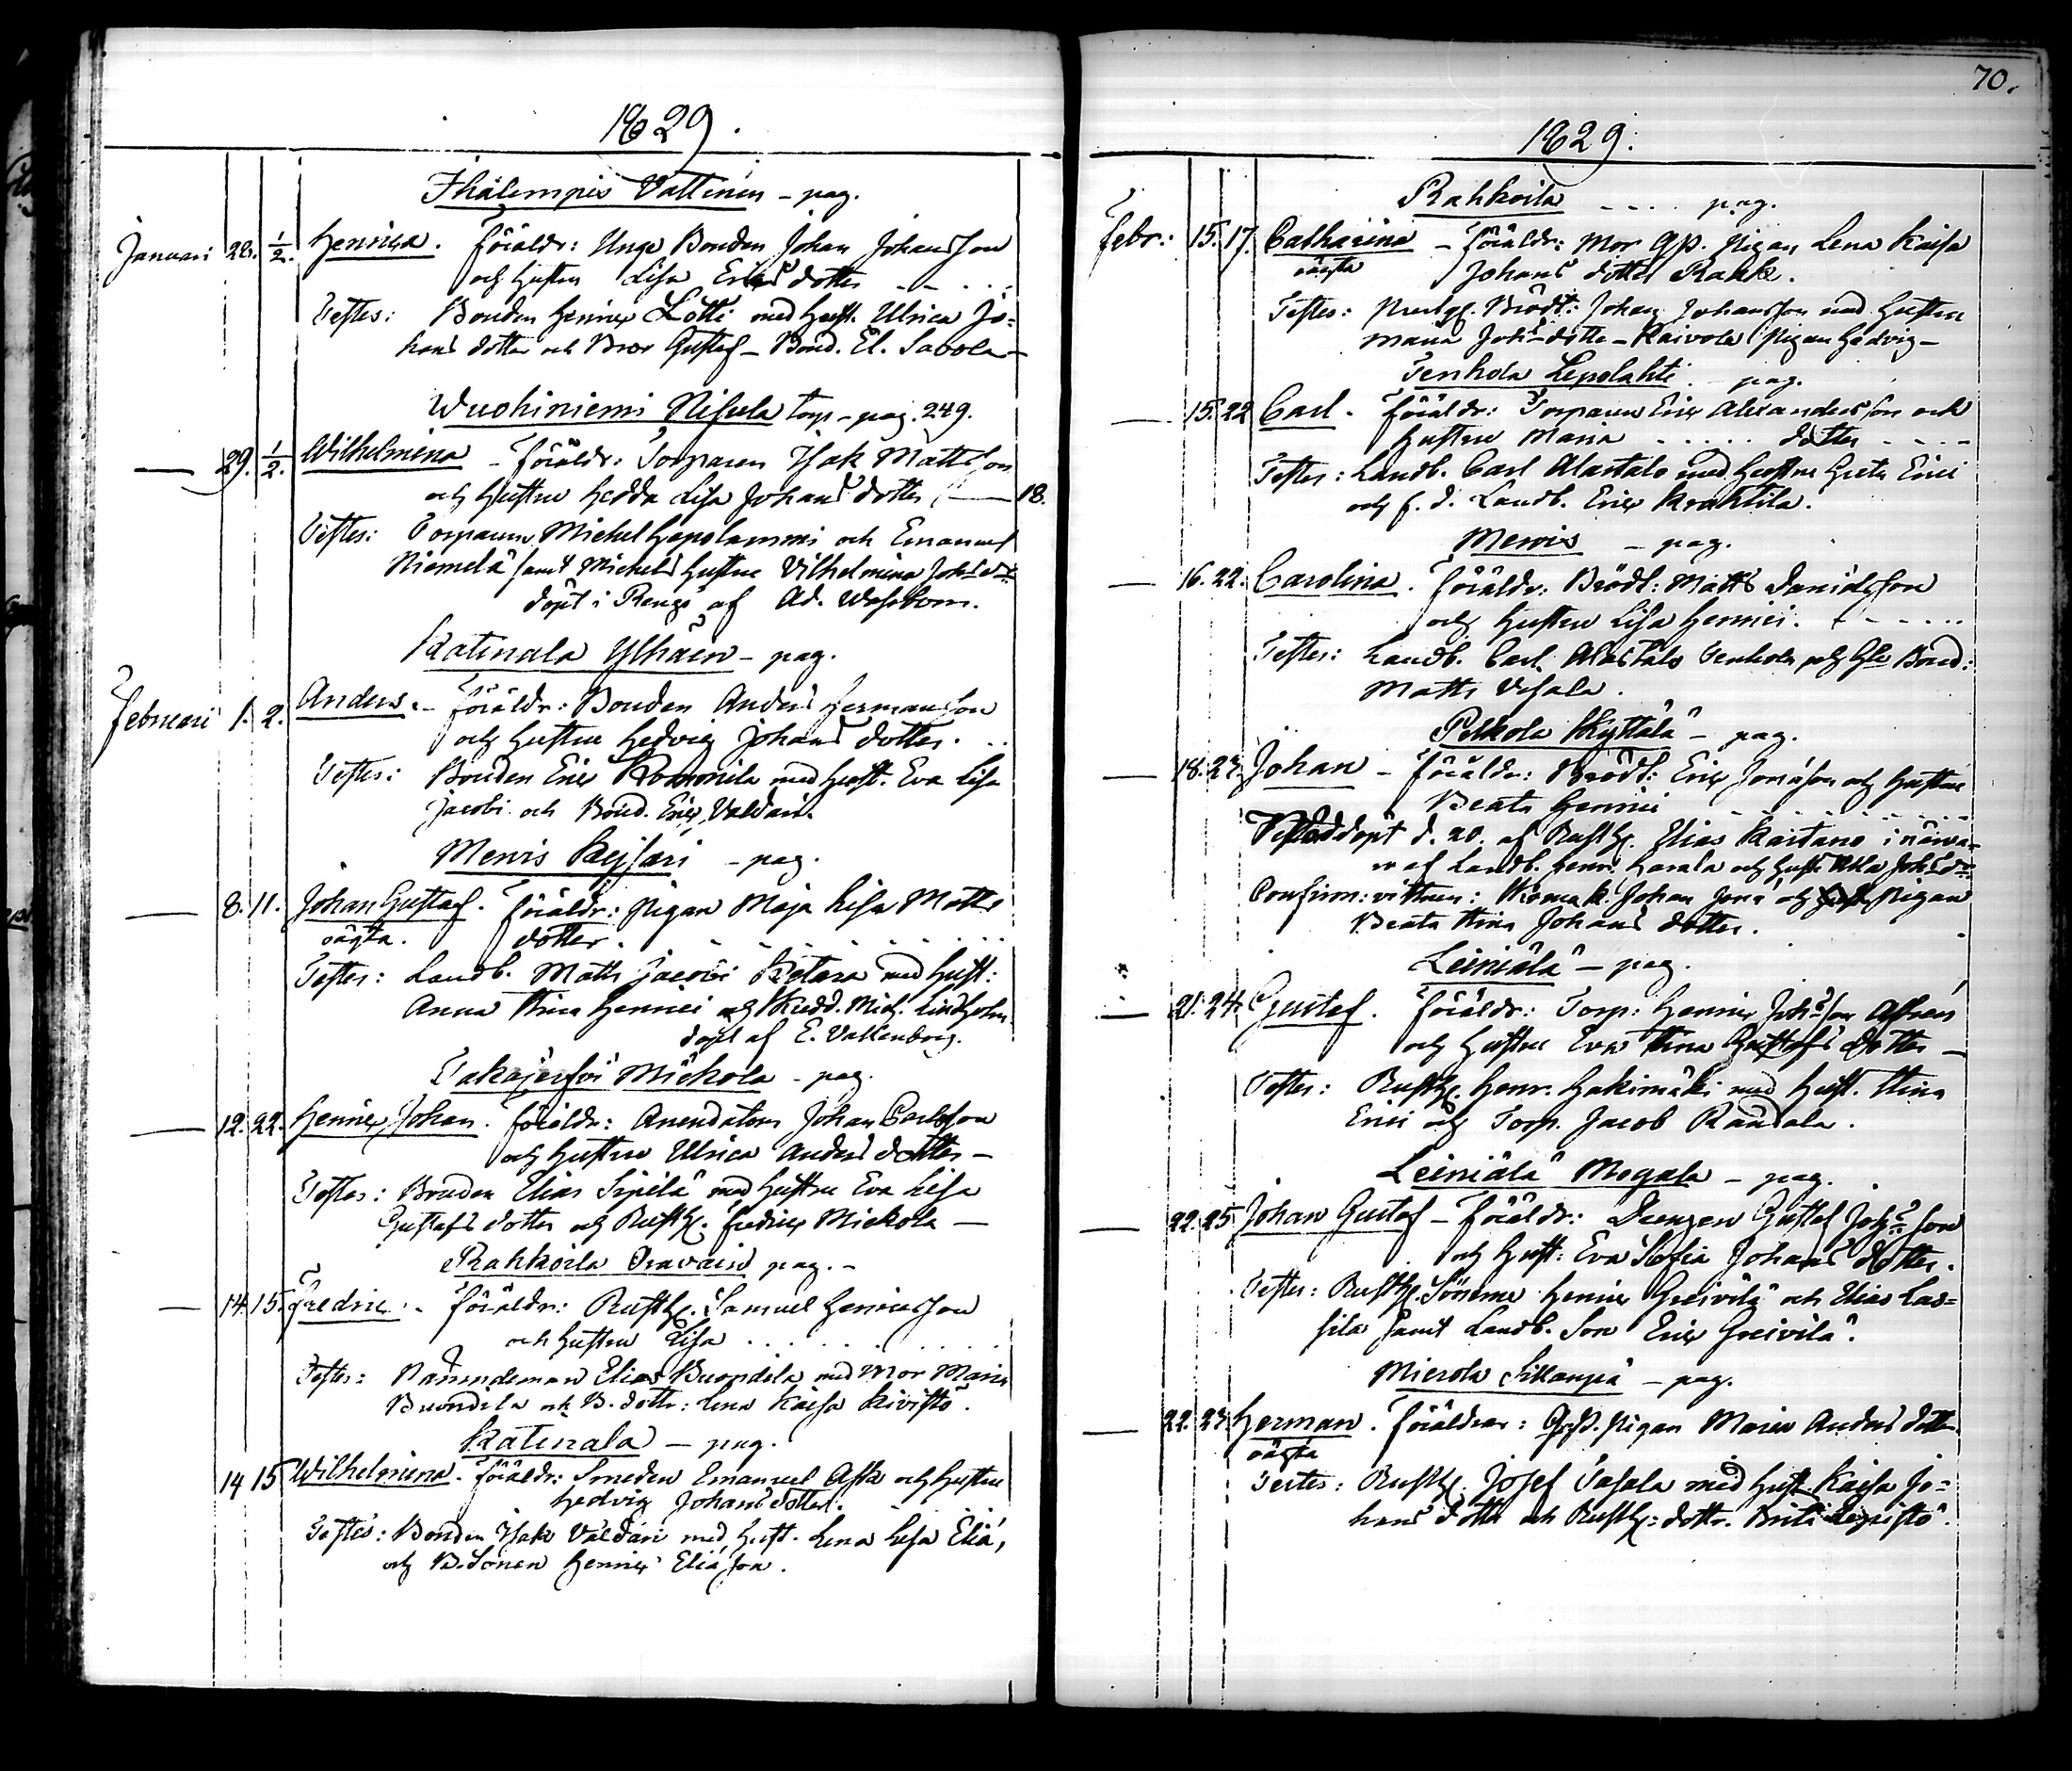 1829.
Ihälempis Vallinen - pag.
Januari 28. 1/2. Henrica. Föräldr: Unge Bonden Johan Johansson
och hustrun Lisa Eriksdotter
Testes: Bonden Henric Lotti med hust. Ulrica Jo=
hans dotter och Bror Gustaf - Bond. El. Savola
Wuohiniemi Nisula torp - pag. 249.
29. 1/2. Wilhelmina - Föräldr: Torparen Isak Mattsson
och hustrun Hedda Lisa Johans dotter 18.
Testes: Torparen Michel Hepolammi och Emanuel
Niemelä samt Michels hustru Vilhelmina Johsdr
döpt i Rengo af Ad.
Katinala Ylhäen - pag.
Februari 1. 2. Anders. - Föräldr: Bonden Anders Hermansson
och hustrun Hedvig Johans dotter.
Testes: Bonden Eric Rommila med hust. Eva Lisa
Jacobi och Bond. Eric Valdari.
Mervis Kejsari - pag.
8. 11. Johan Gustaf. Föräldr: Pigan Maja Lisa Matts
oägta. dotter.
Testes: Landb. Matts Jacobi Ketara med hust:
Anna Stina Henrici och Mich. Lindholm
döpt af E. Vallenborg.
Takajersöi Mickola - pag.
12. 22. Henric Johan. Föräldr: Arendatorn Johan Carlsson
och hustrun Ulrica Anders dotter -
Testes: Bonden Elias Sipilä med hustru Eva Lisa
Gustafs dotter och Rusth. Fredric Mickola -
Rahkoila Oravain pag. -
14. 15. Fredric. - Föräldr: Rusth. Samuel Henricsson
och hustrun Lisa
Testes: Nämndeman Elias Buondela med mor Maria
Buondila och B. dottr: Lena Kaisa Kivistö.
Katinala - pag.
14 15 Wilhelmina. Föräldr: Smeden Emanuel Ask och hustrun
Hedvig Johans dotter.
Testes: Bonden Isak Valdari med hust. Lena Lisa Eliæ,
och B. Sonen Henric Eliæson.
70.
1829.
Rahkoila pag.
Febr: 15. 17. Catharina - Föräldr: Mor Pigan Lena Kaisa
oägta Johans dotter Rahk.
Testes: Brodt: Johan Johansson med hustru
Maria Johs dotter - Raivola Pigan Hedvig -
Tenhola Lepolahti - pag.
15. 22 Carl. Föräldr: Torparen Eric Alexandersson och
hustrun Maria dotter
Testes: Landb. Carl Alastalo med hustru Greta Erici
och f. d. Landb. Eric Krahtila.
Mervis - pag.
16. 22. Carolina. Föräldr: Brodt: Matts Danielsson
och hustru Lisa Henrici.
Testes: Landb. Carl Alastalo Tenhola och Bond:
Matts Vesala.
Pelkola Kyttälä - pag.
18. 23. Johan - Föräldr: Brodt: Eric Jonasson och hustrun
Beata Henrici
döpt d. 20. af Rusth. Elias Kaitano i närva=
ro af Landb. Henr. Harala och hust. Ulla Johsdr
Confirm: vittnen: Johan Jona och Pigan
Beata Stina Johans dotter.
Leiniälä - pag.
21. 24. Gustaf. Föräldr: Torp: Henric Johsson
och hustru Eva Stina Gustafs dotter -
Testes: Rusth. Henr. Hakimäki med hust. Stina
Erici och Torp. Jacob Randala.
Leiniälä Mogala - pag.
22. 25 Johan Gustaf - Föräldr: Drengen Gustaf Johsson
och hust: Eva Sofia Johans dotter.
Testes: Rusth. Sönerne Henric Greivilä och Elias Las=
sila samt Landb. Son Eric Greivilä.
Mierola Sillanpä - pag.
22. 23. Herman. Föräldrar: Pigan Maria Anders dotter
oägta
Testes: Rusth. Josef Tasala med hust Kaisa Jo=
hans dotter och Rusth: dottr. Brita